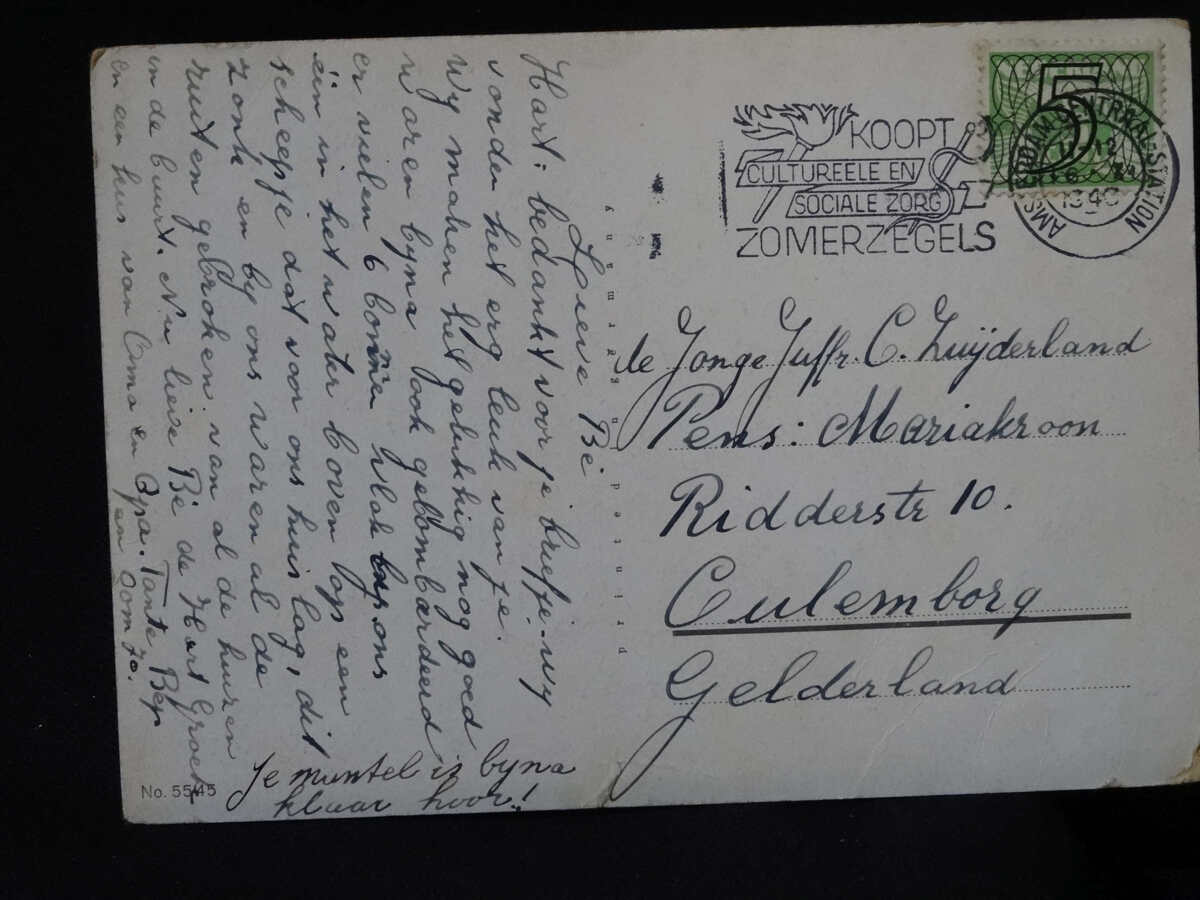 Lieve Bé
Hart: bedankt voor je briefje. wy
vonden het erg leuk van je.
Wy maken het gelukkig nog goed
waren byna ook gebombardeerd
er vielen 6 bomme vlak by ons
één in het water boven op een
scheepje dat voor ons huis lag, dit
zonk en by ons waren al de
ruiten gebroken van al de huizen
in de buurt. Nu lieve Bé de Hart Groeten
en een kus van Oma en Opa. Tante Bep
en oom Jo.
Je mantel is byna
klaar hoor!
No. 5545
KOOPT
CULTUREELE EN
SOCIALE ZORG
ZOMERZEGELS
5
AMSTERDAM CENTRAAL-STATION
1940
de Jonge Juffr. C. Zuijderland
Pens: Mariakroon
Ridderstr 10.
Culemborg
Gelderland